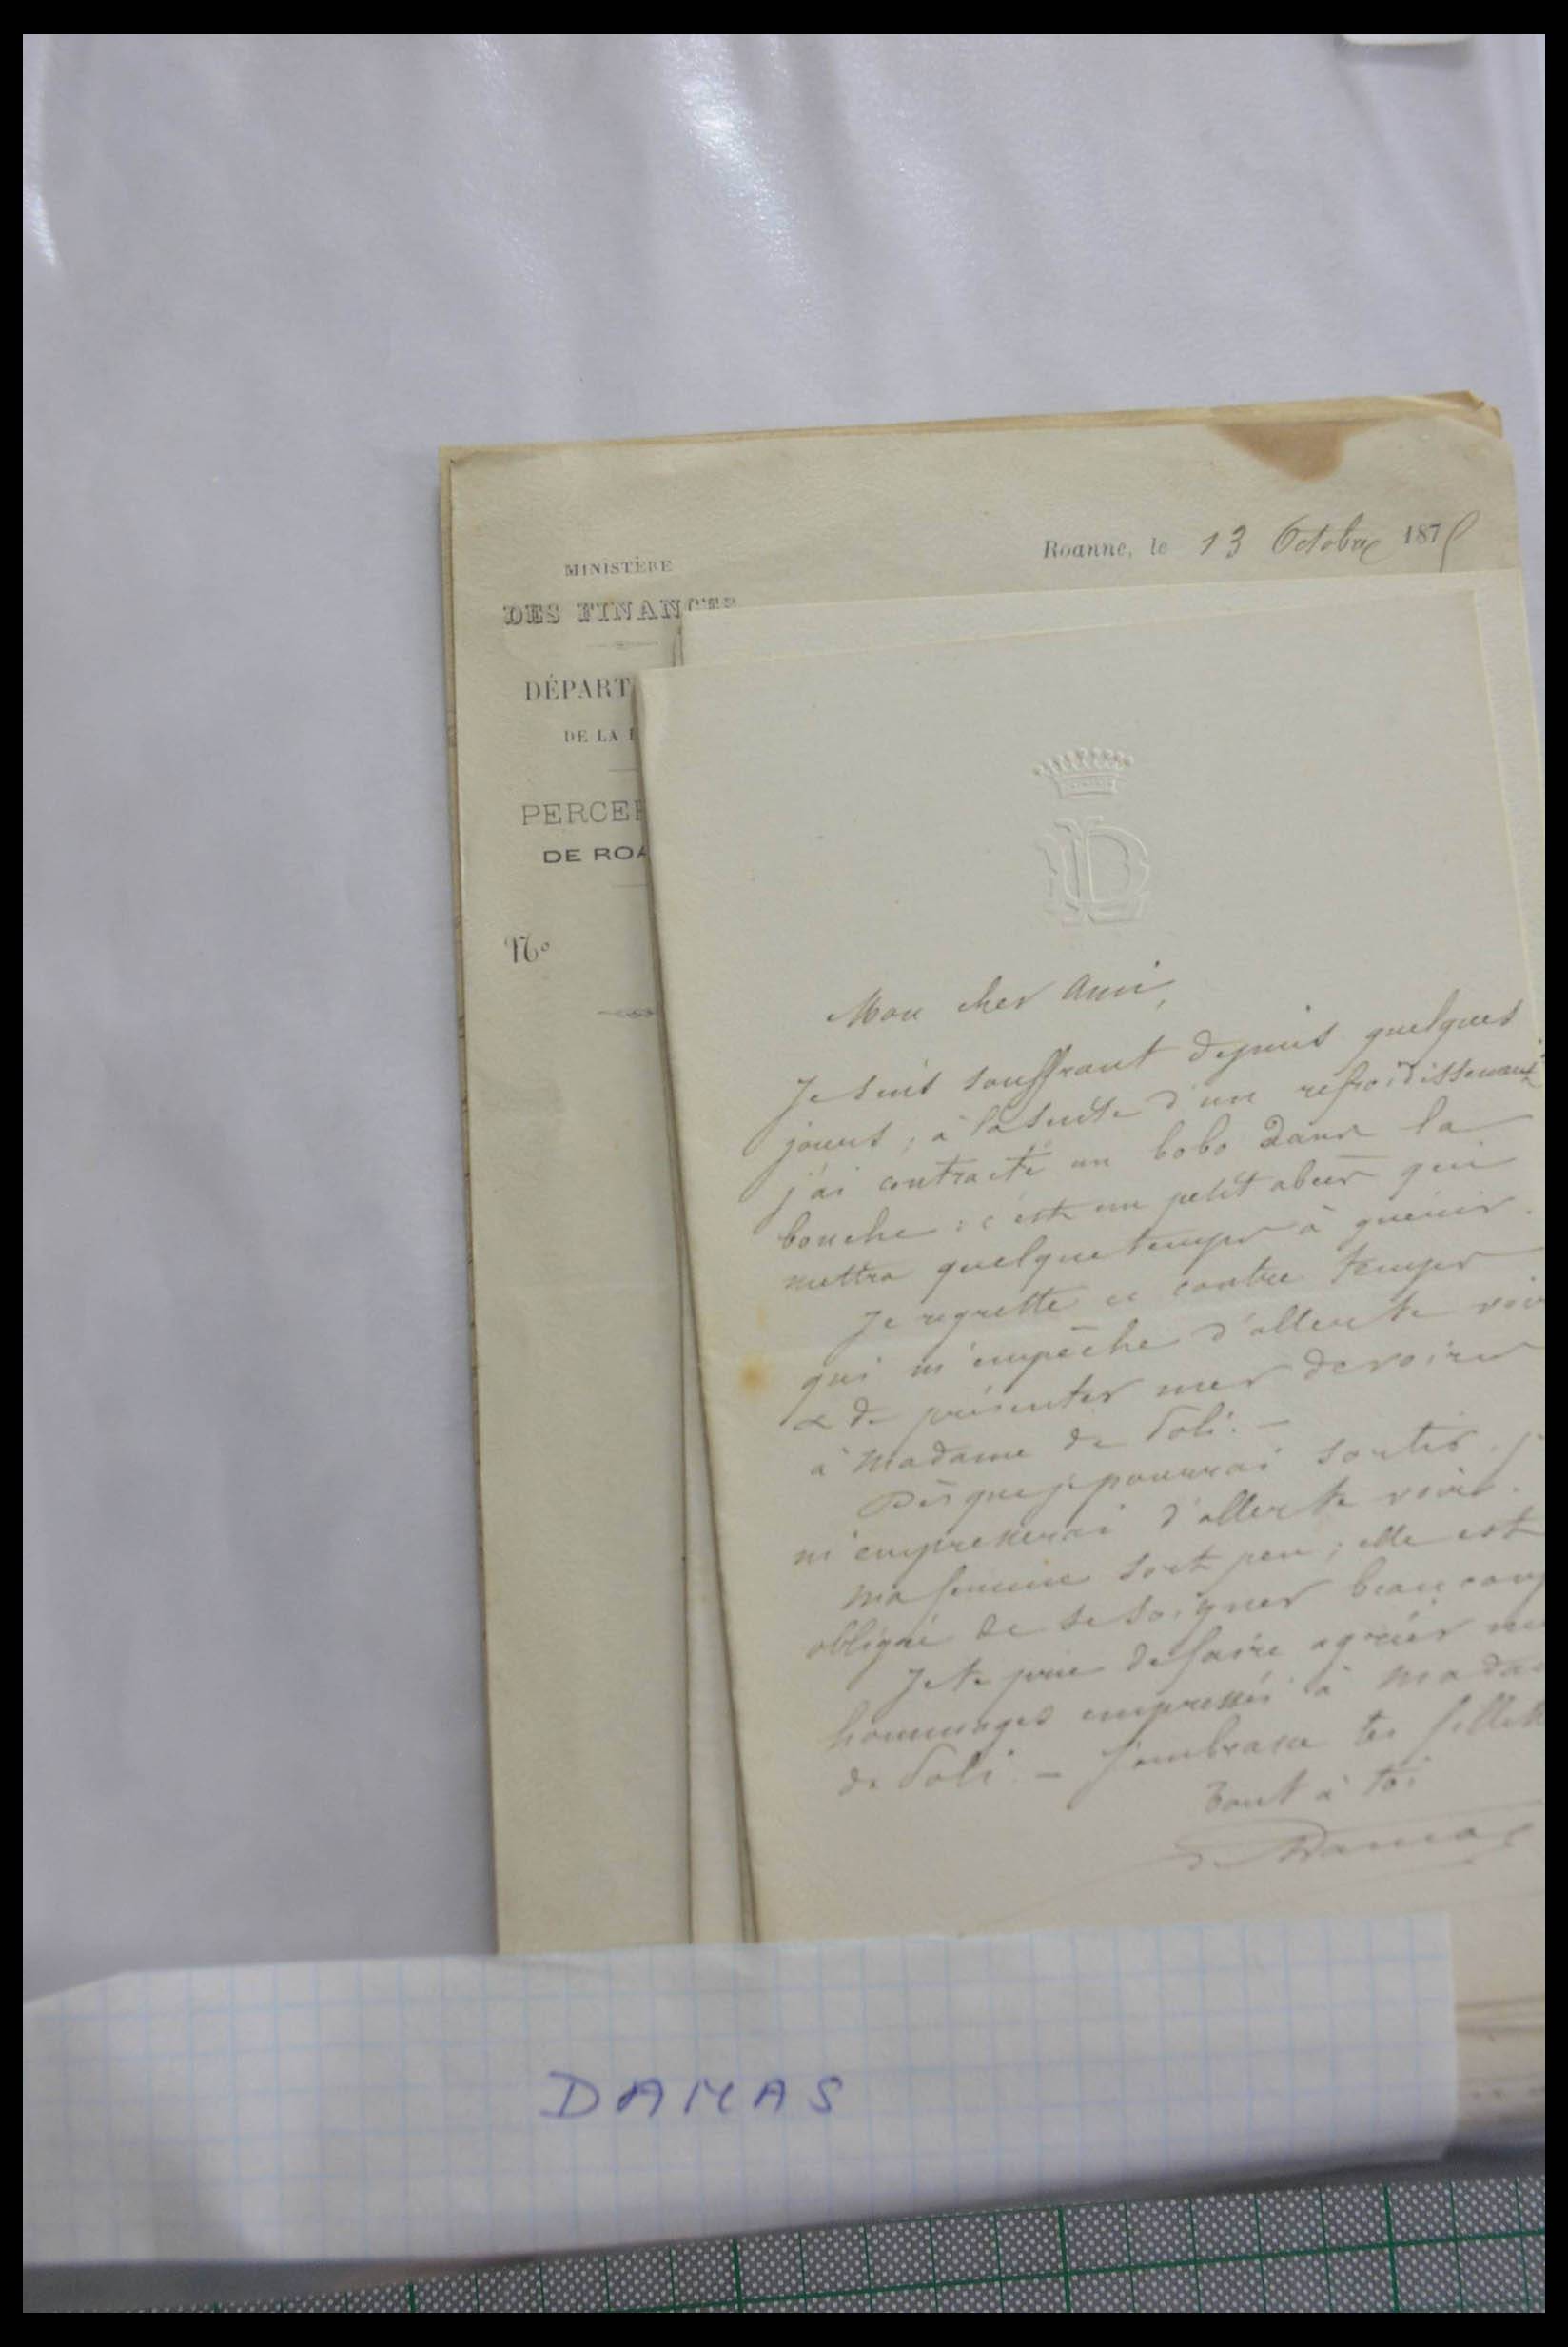 Roanne, le 13 Octobre 187
MINISTÈRE
DES FINANCES
DÉPART
DE LA
PERCE
DE ROA
No
LD
Mon cher Ami,
Je suis souffrant depuis quelques
jours ; à la suite d'un refroidissement
j'ai contracté un bobo dans la
bouche : c'est un petit abcès qui
mettra quelque temps à guérir.
Je regrette ce contre temps
qui m'empêche d'aller te voir
& de présenter mes devoirs
à Madame de Poli. —
Dès que je pourrai sortir, j
m'empresserai d'aller te voir.
Ma femme sort peu ; elle est
obligé de se soigner beaucoup
Je te prie de faire agréer me
hommages empressés à Madam
de Poli. — J'embrasse tes fillett
Tout à toi
de Damas
DAMAS